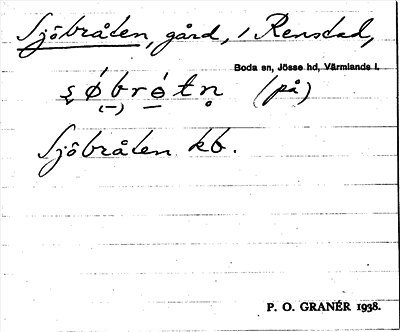 Sjöbråten, gård, i Renstad,
Boda sn, Jösse hd, Värmlands l.
s̨ǿbrǿtn̥ (på)
(–) –
Sjöbråten kb.
P. O. GRANÉR 1938.